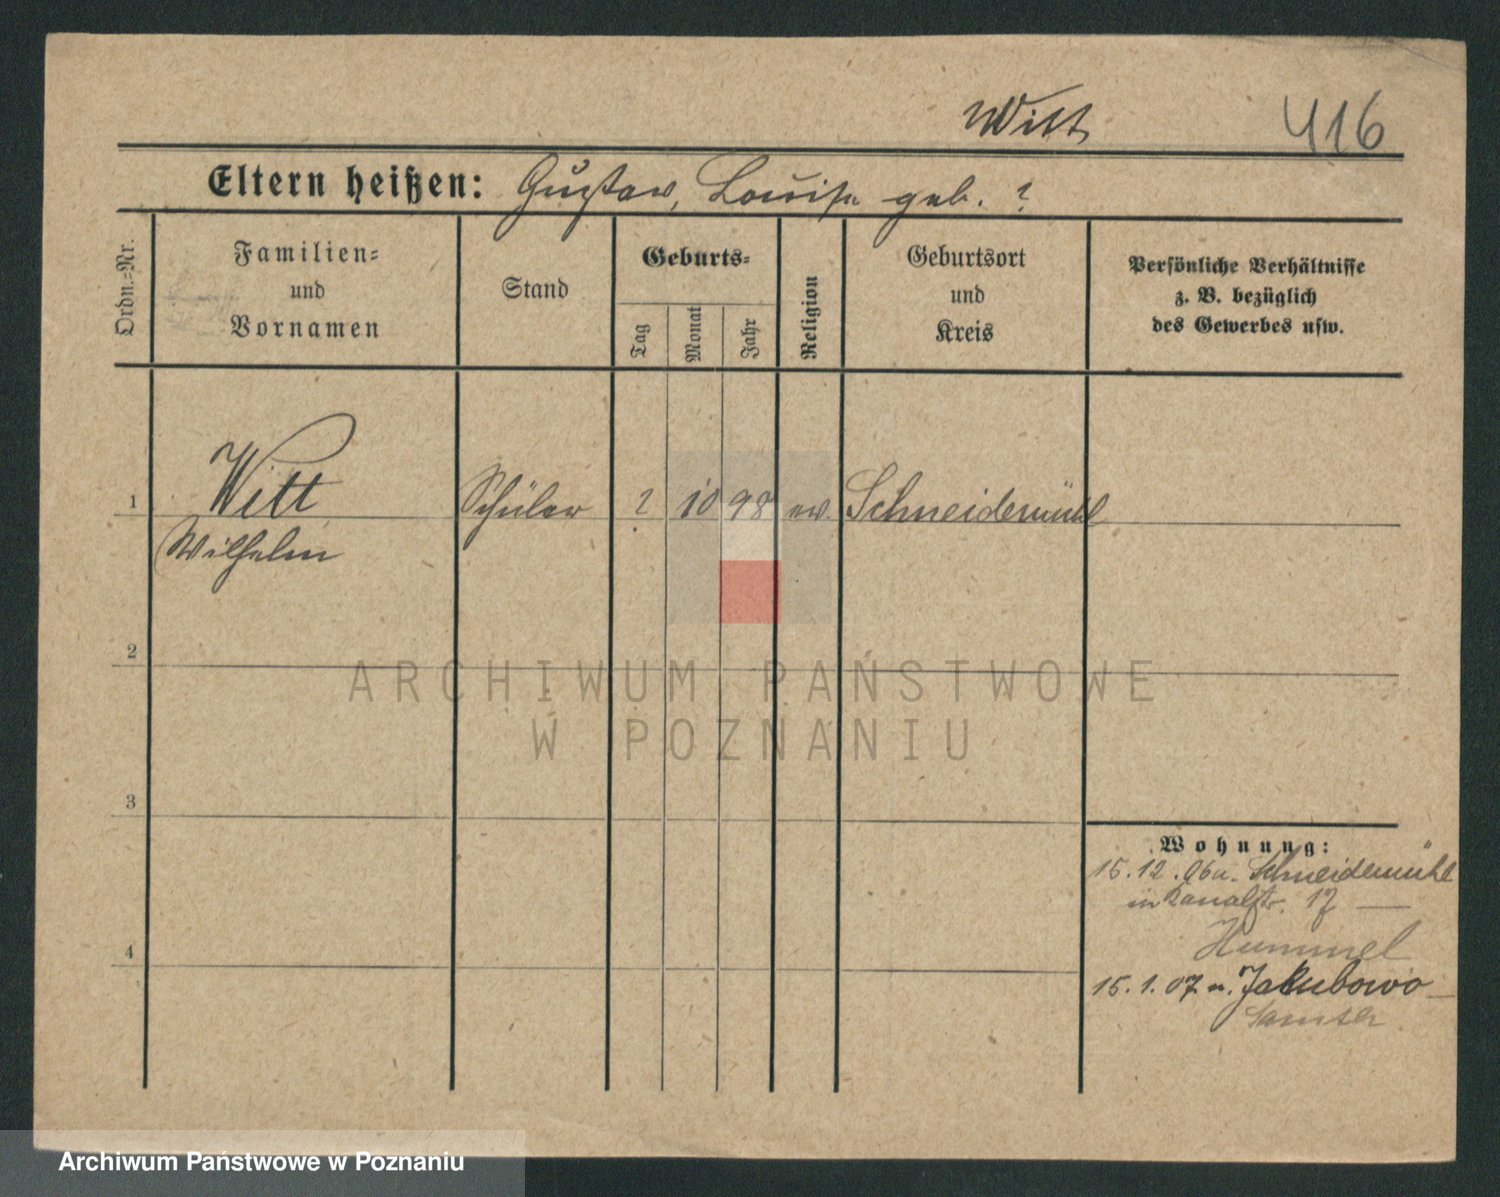 Witt
416
Eltern heißen: Gustav, Louise geb. ?
Ordn.=Nr.
Familien=
und
Vornamen
Stand
Geburts=
Tag
Monat
Jahr
Religion
Geburtsort
und
Kreis
Persönliche Verhältnisse
z. B. bezüglich
des Gewerbes usw.
1
Witt
Wilhelm
Schüler
2
10
98
ev.
Schneidemühl
2
ARCHIWUM PAŃSTWOWE
W POZNANIU
3
4
Wohnung:
15.12.06 a. Schneidemühl
in Kanalstr. 17
Hummel
15.1.07 n. Jakubowo
Samter
Archiwum Państwowe w Poznaniu